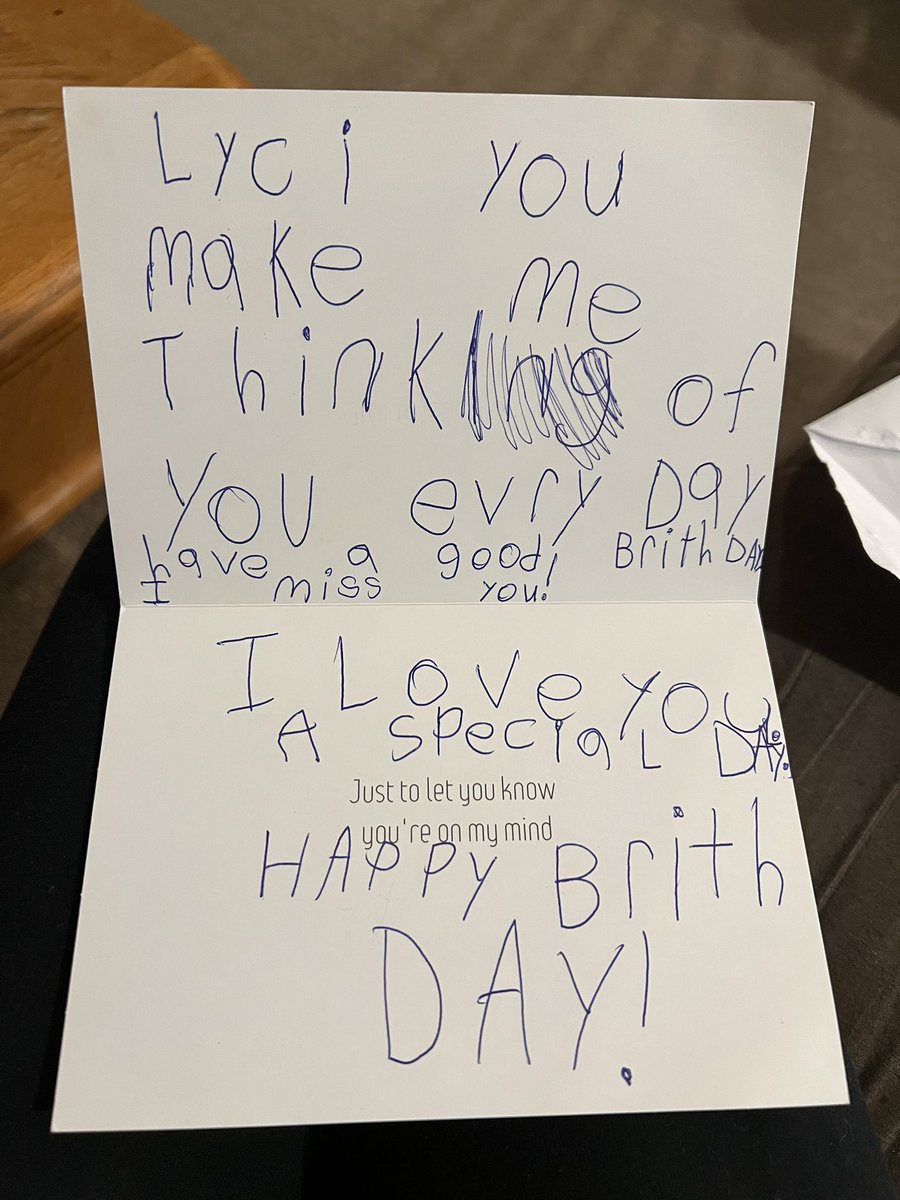 Lyci you
make me
Think of
you evry Day
have a good! Brith DAY
I miss you!
I Love you
A special DAy!
Just to let you know
you're on my mind
HAPPy Brith
DAY!